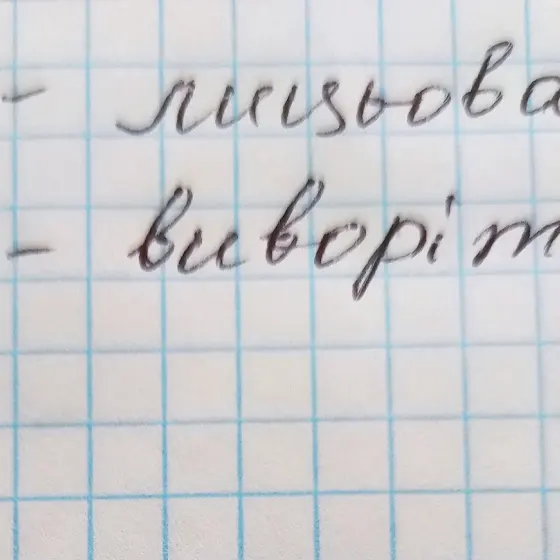 - лицьова
- виворіт